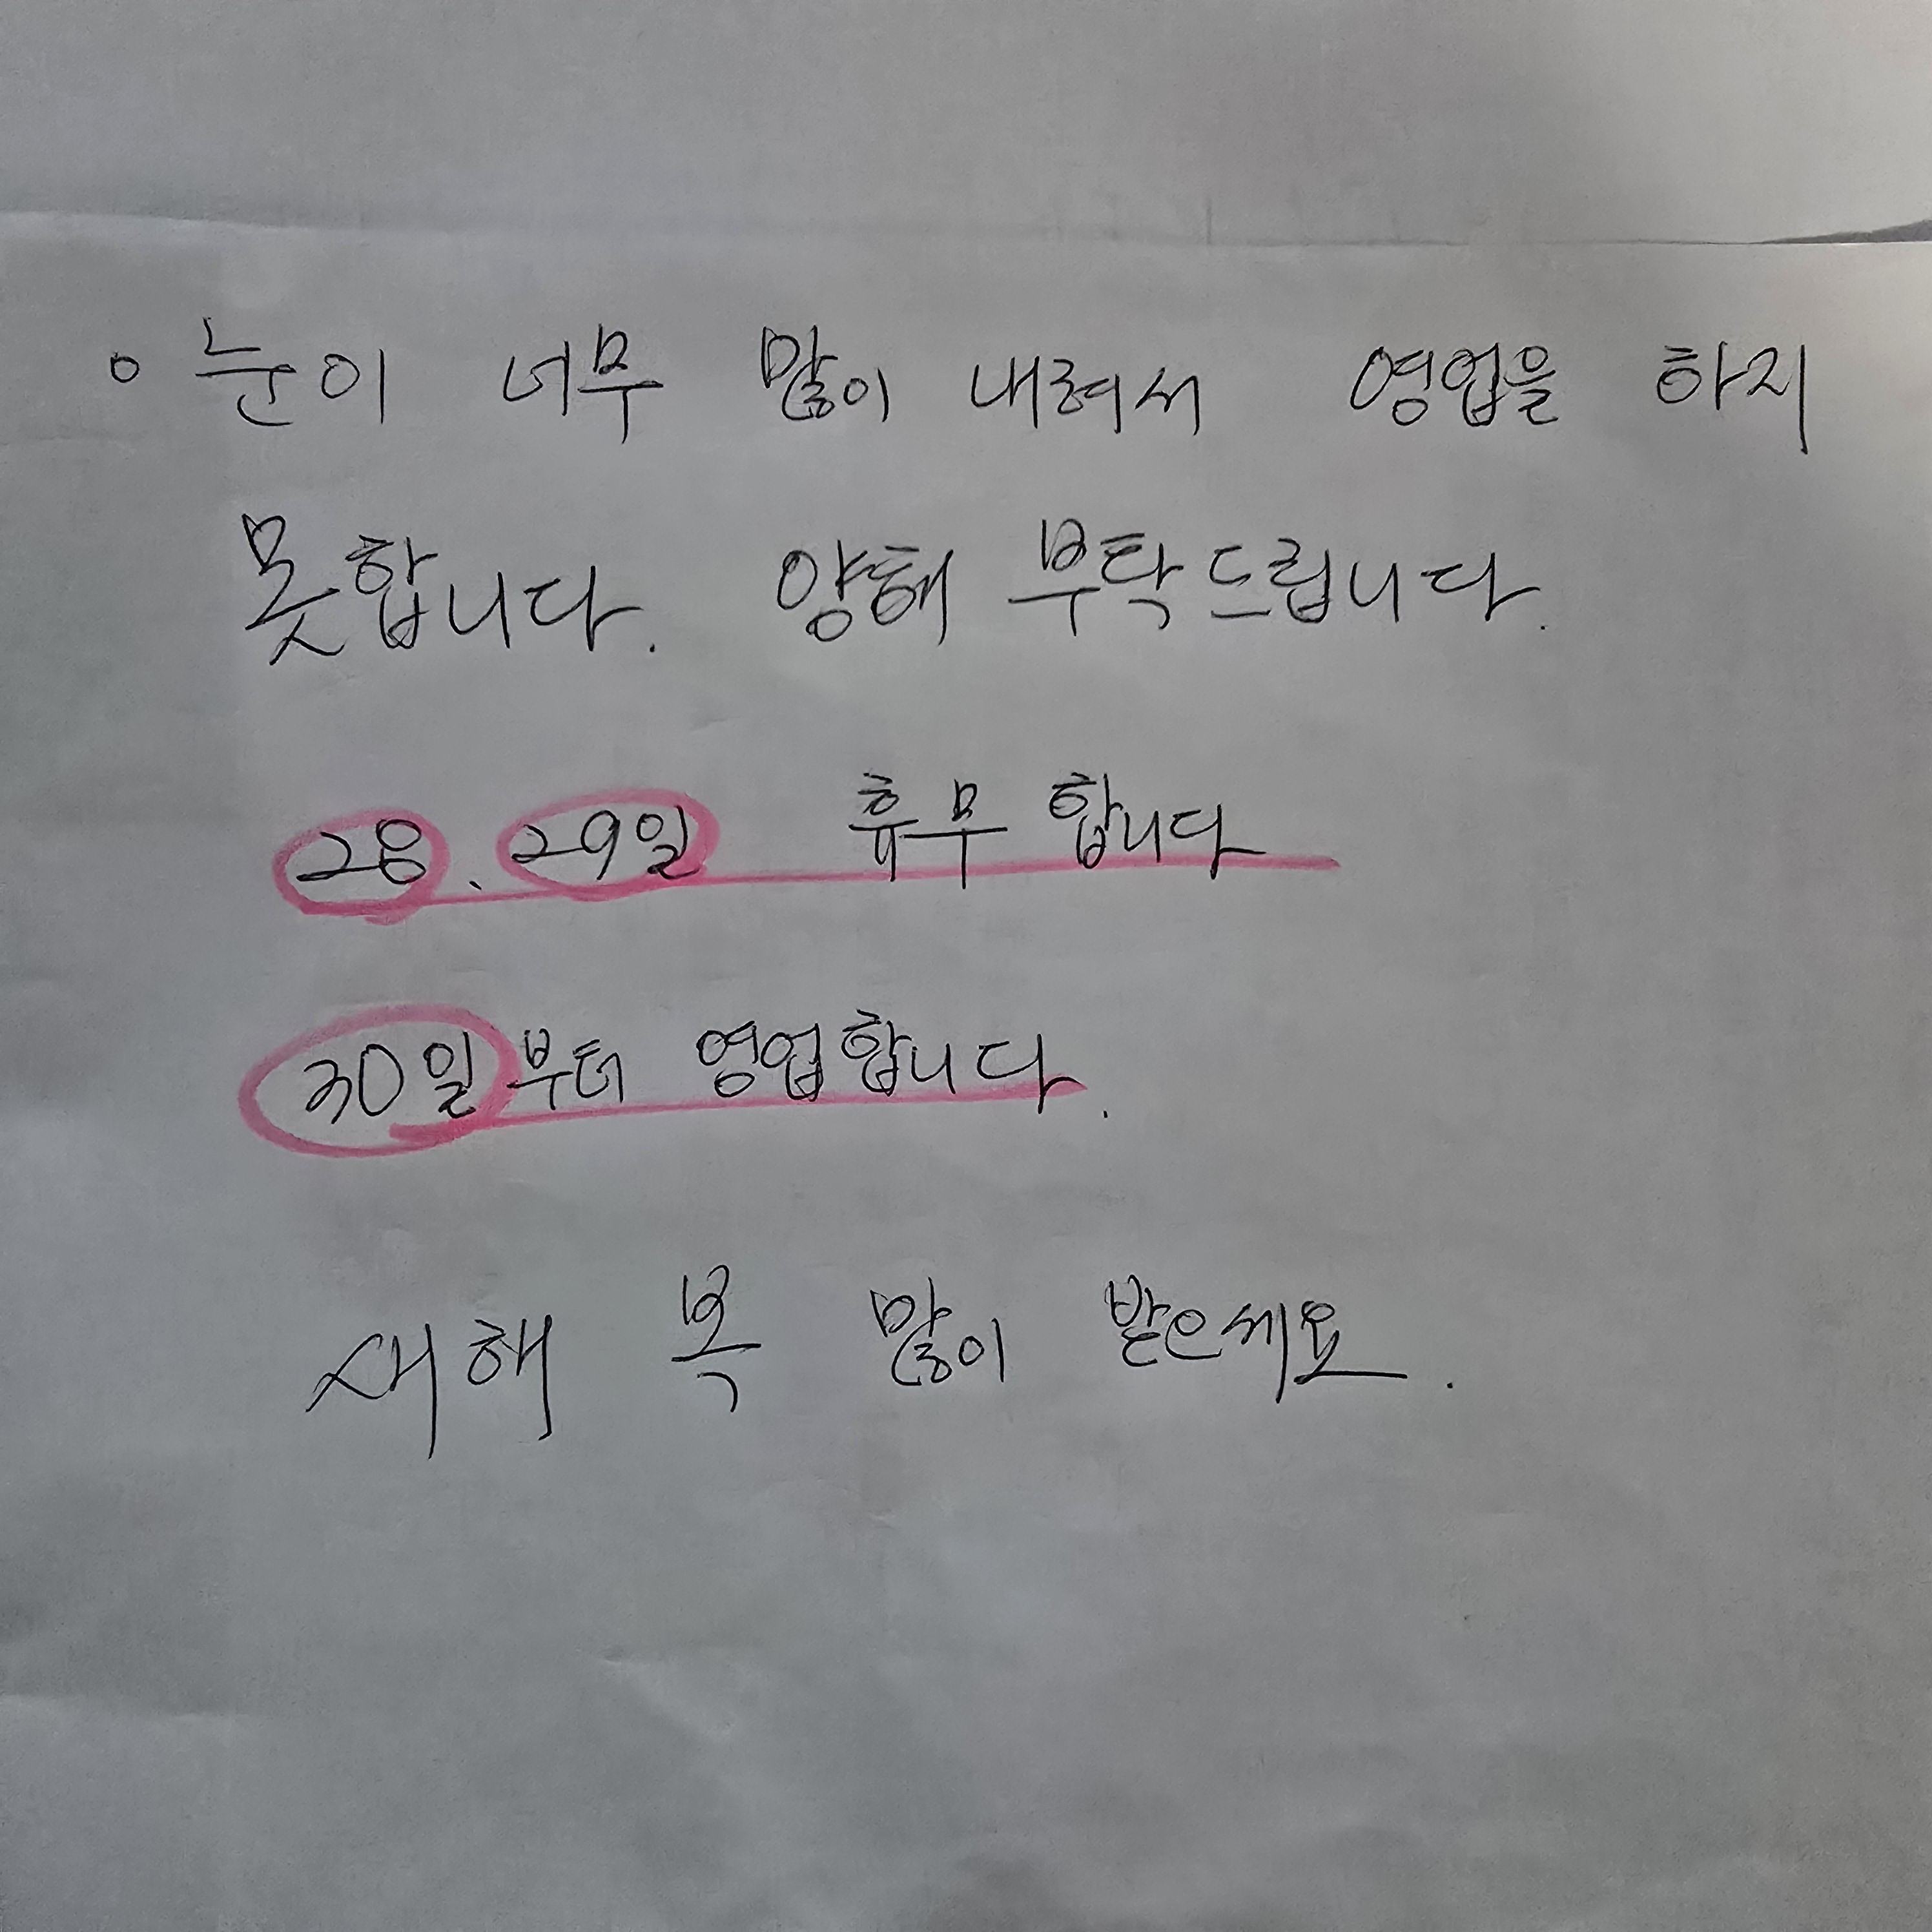 ○ 눈이 너무 많이 내려서 영업을 하지
못합니다. 양해 부탁드립니다.
28. 29일 휴무 합니다
30일부터 영업합니다.
새해 복 많이 받으세요.